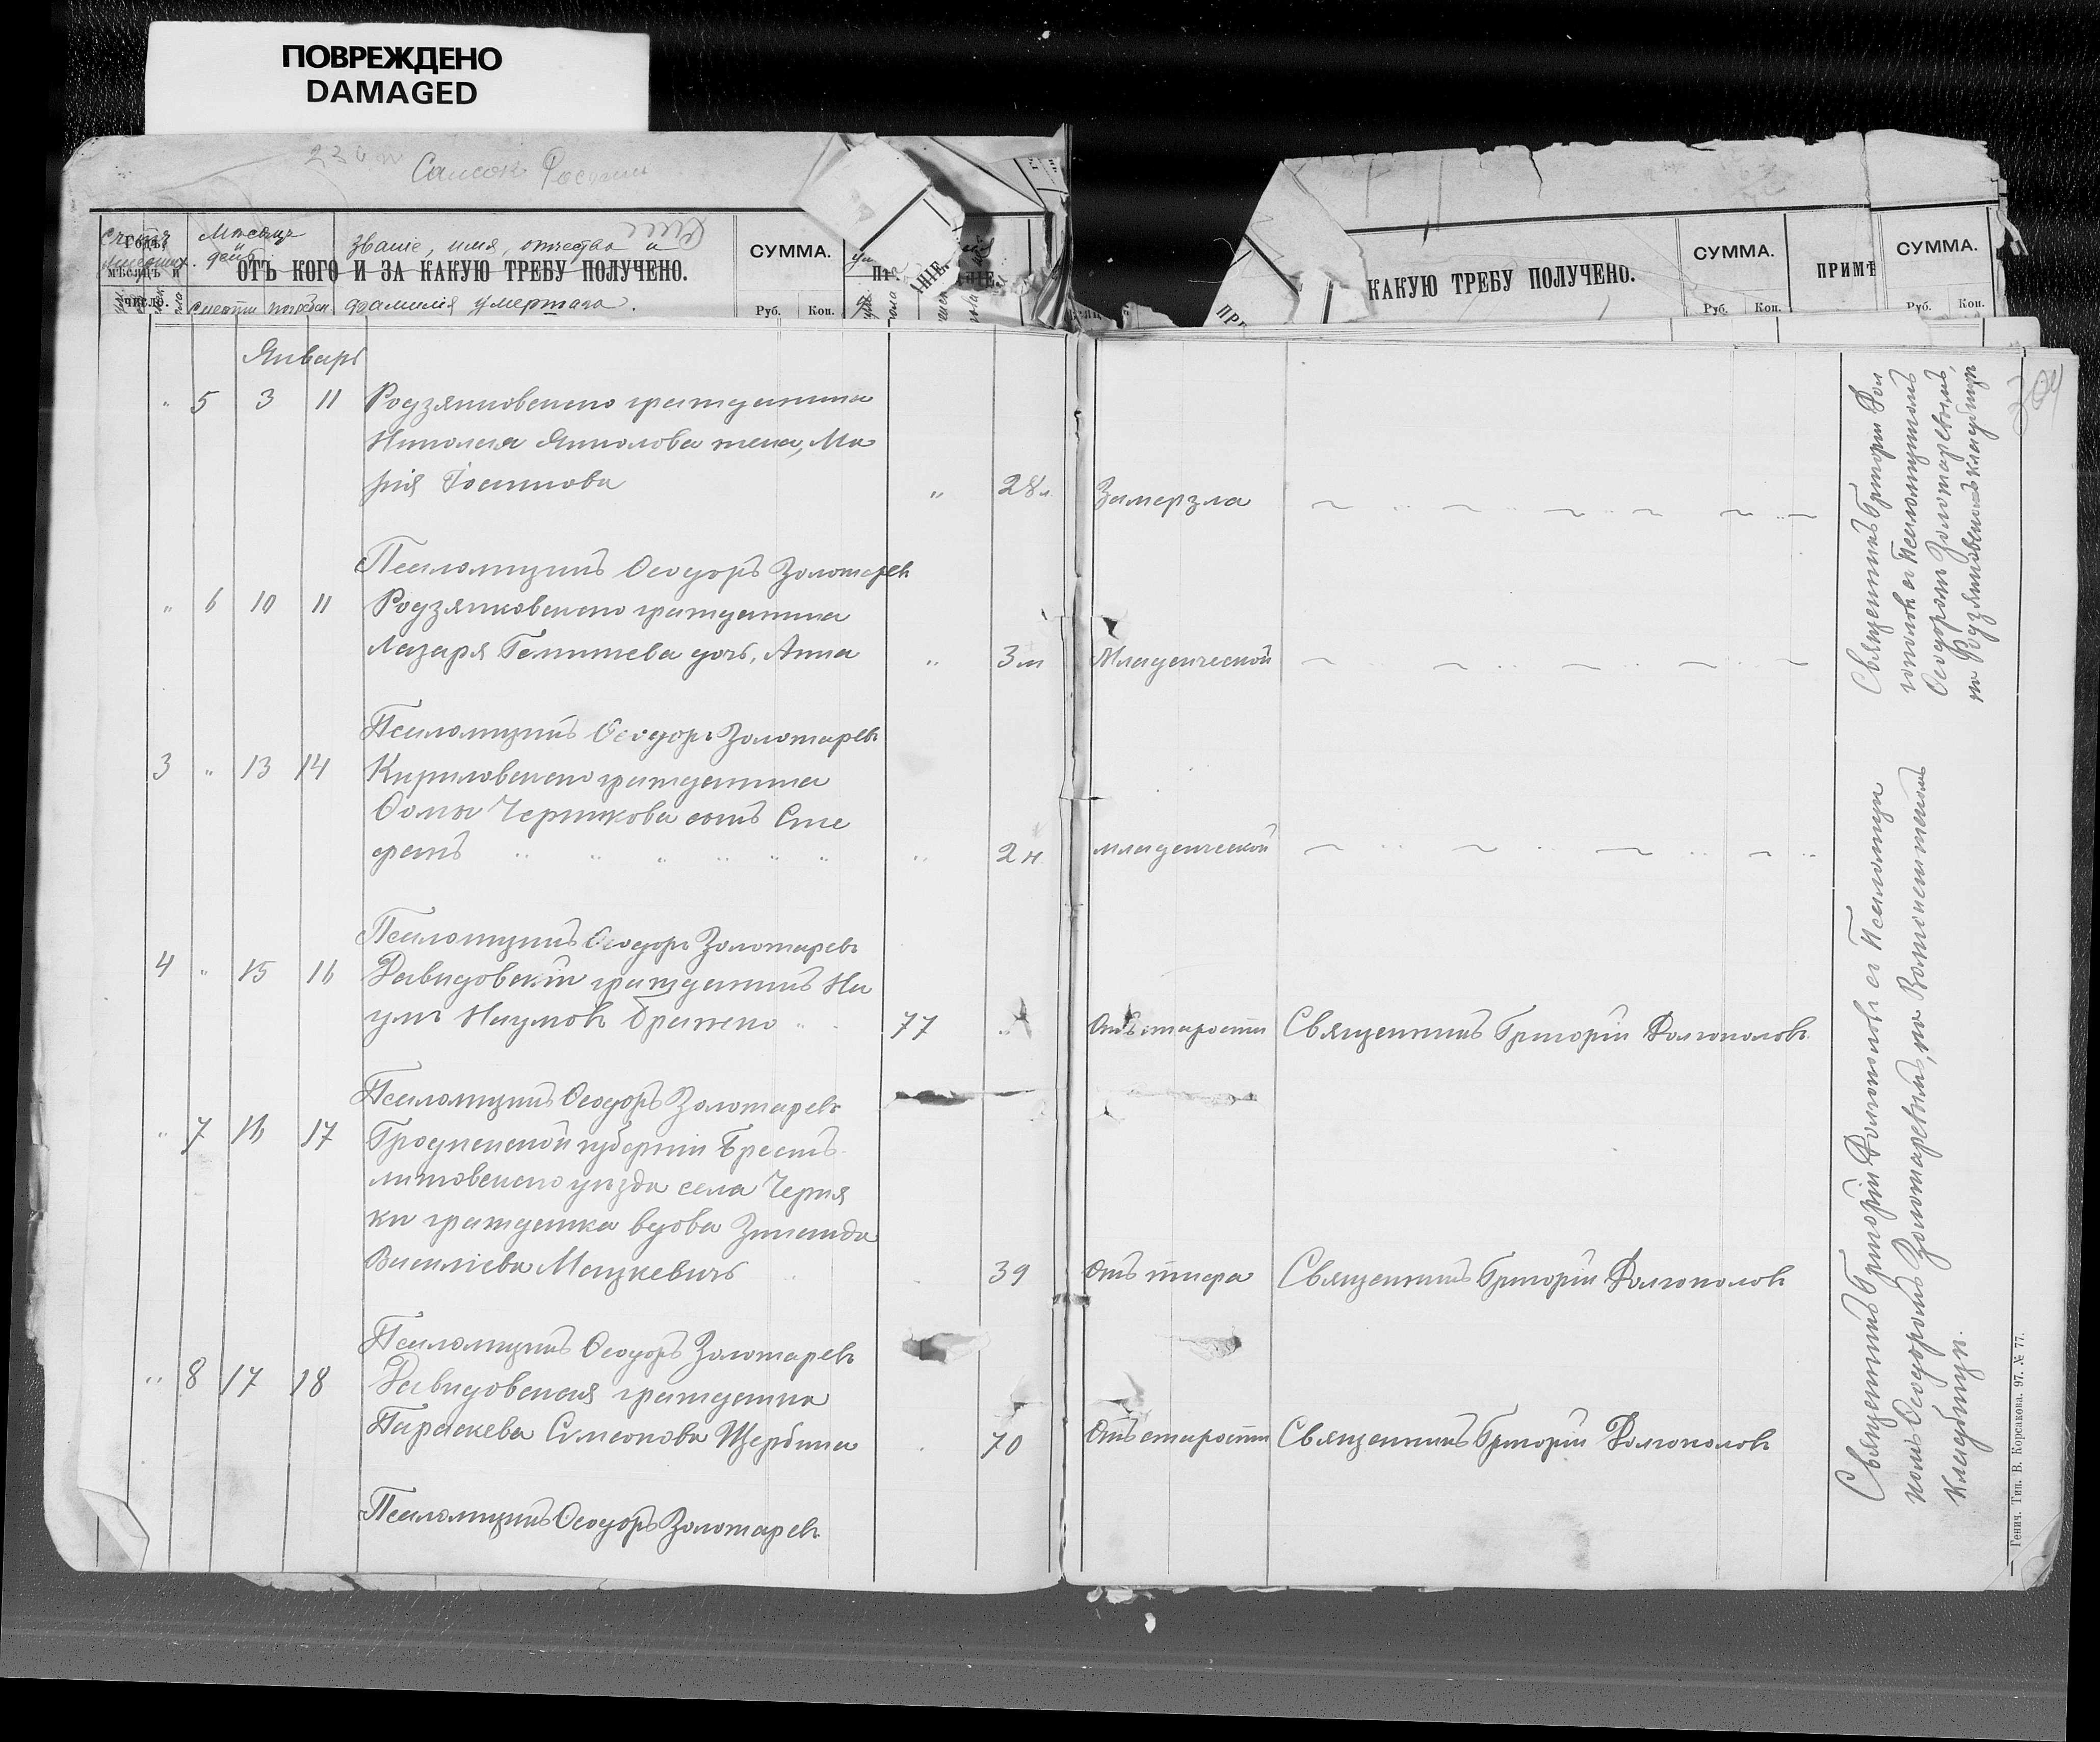 ПОВРЕЖДЕНО
DAMAGED
Мѣсяцъ
и
день
званіе, имя, отчество и
ОТЪ КОГО И ЗА КАКУЮ ТРЕБУ ПОЛУЧЕНО.
фамилія умершаго.
число.
СУММА.
Руб. Коп.
КАКУЮ ТРЕБУ ПОЛУЧЕНО.
СУММА.
Руб. Коп.
ПРИМѢ
СУММА.
Руб. Коп.
304
Январь
" 5 3 11 Родзянковскаго гражданина
Николая Яколова жена, Ма
рія Іосифова " 28 л. Замерзла
Псаломщикъ Ѳеодоръ Золотаревъ
" 6 10 11 Родзянковскаго гражданина
Лазаря дочь, Анна " 3 м Младенческой
Псаломщикъ Ѳеодоръ Золотаревъ
3 " 13 14 Кириловскаго гражданина
Ѳомы Черникова сынъ Сте
фанъ " 2 н. младенческой
Псаломщикъ Ѳеодоръ Золотаревъ
4 " 15 16 Давидовскій гражданинъ На
умъ Наумовъ Бражко 77 " Отъ старости Священникъ Григорій Долгополовъ
Псаломщикъ Ѳеодоръ Золотаревъ
" 7 16 17 Гродненской губерніи Брестъ
литовскаго уѣзда села Черня
ки гражданка вдова Зинаида
Василіева Мацкевичъ 39 Отъ тифа Священникъ Григорій Долгополовъ
Псаломщикъ Ѳеодоръ Золотаревъ
" 8 17 18 Давидовская гражданка
Параскева Симеонова Щербина 70 Отъ старости Священникъ Григорій Долгополовъ
Псаломщикъ Ѳеодоръ Золотаревъ
Священникъ Григорій Дол
гополовъ съ Псаломщикомъ
Ѳеодоромъ Золотаревымъ,
на Родзянковскомъ кладбищѣ
Священникъ Григорій Долгополовъ съ Псаломщи
комъ Ѳеодоромъ Золотаревымъ, на
кладбищѣ.
Генич. Тип. В. Корсакова. 97. № 77.